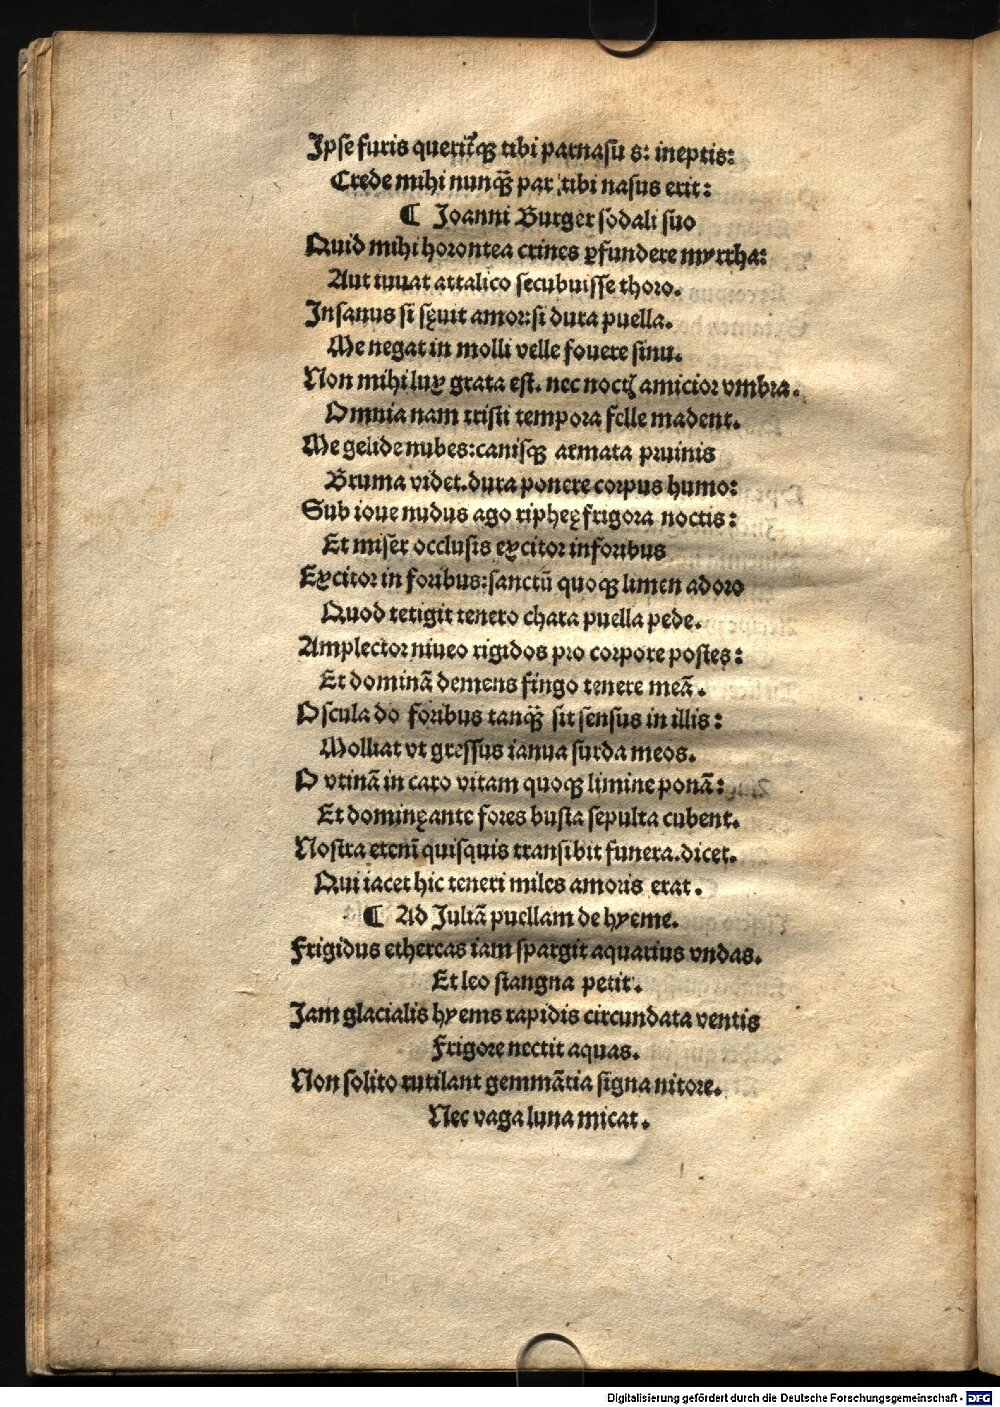 Ipse furis querit̃qꝫ tibi parnasu s: ineptis:
Crede mihi nunqꝫ̃ par tibi nasus erit:
¶ Joanni Burger sodali suo
Quid mihi horontea crines ꝑfundere myrrha:
Aut iuuat attalico secubuisse thoro.
Insanus si sęuit amor: si dura puella.
Me negat in molli velle fouere sinu.
Non mihi lux grata est. nec noctꝭ amicior vmbra.
Omnia nam tristi tempora felle madent.
Me gelide nubes: canisqꝫ armata pruinis
Bruma videt. dura ponere corpus humo:
Sub ioue nudus ago ripheę frigora noctis:
Et miser occlusis excitor in foribus
Excitor in foribus: sanctū quoqꝫ limen adoro
Quod tetigit tenero chara puella pede.
Amplector niueo rigidos pro corpore postes:
Et dominā demens fingo tenere meā.
Oscula do foribus tanqꝫ̃ sit sensus in illis:
Molliat vt gressus ianua surda meos.
O vtinā in caro vitam quoqꝫ limine ponā:
Et dominę ante fores busta sepulta cubent.
Nostra etenī quisquis transibit funera. dicet.
Qui iacet hic teneri miles amoris erat.
¶ Ad Juliā puellam de hyeme.
Frigidus ethereas iam spargit aquarius vndas.
Et leo stangna petit.
Jam glacialis hyems rapidis circundata ventis
Frigore nectit aquas.
Non solito rutilant gemmātia signa nitore.
Nec vaga luna micat.
Digitalisierung gefördert durch die Deutsche Forschungsgemeinschaft - DFG